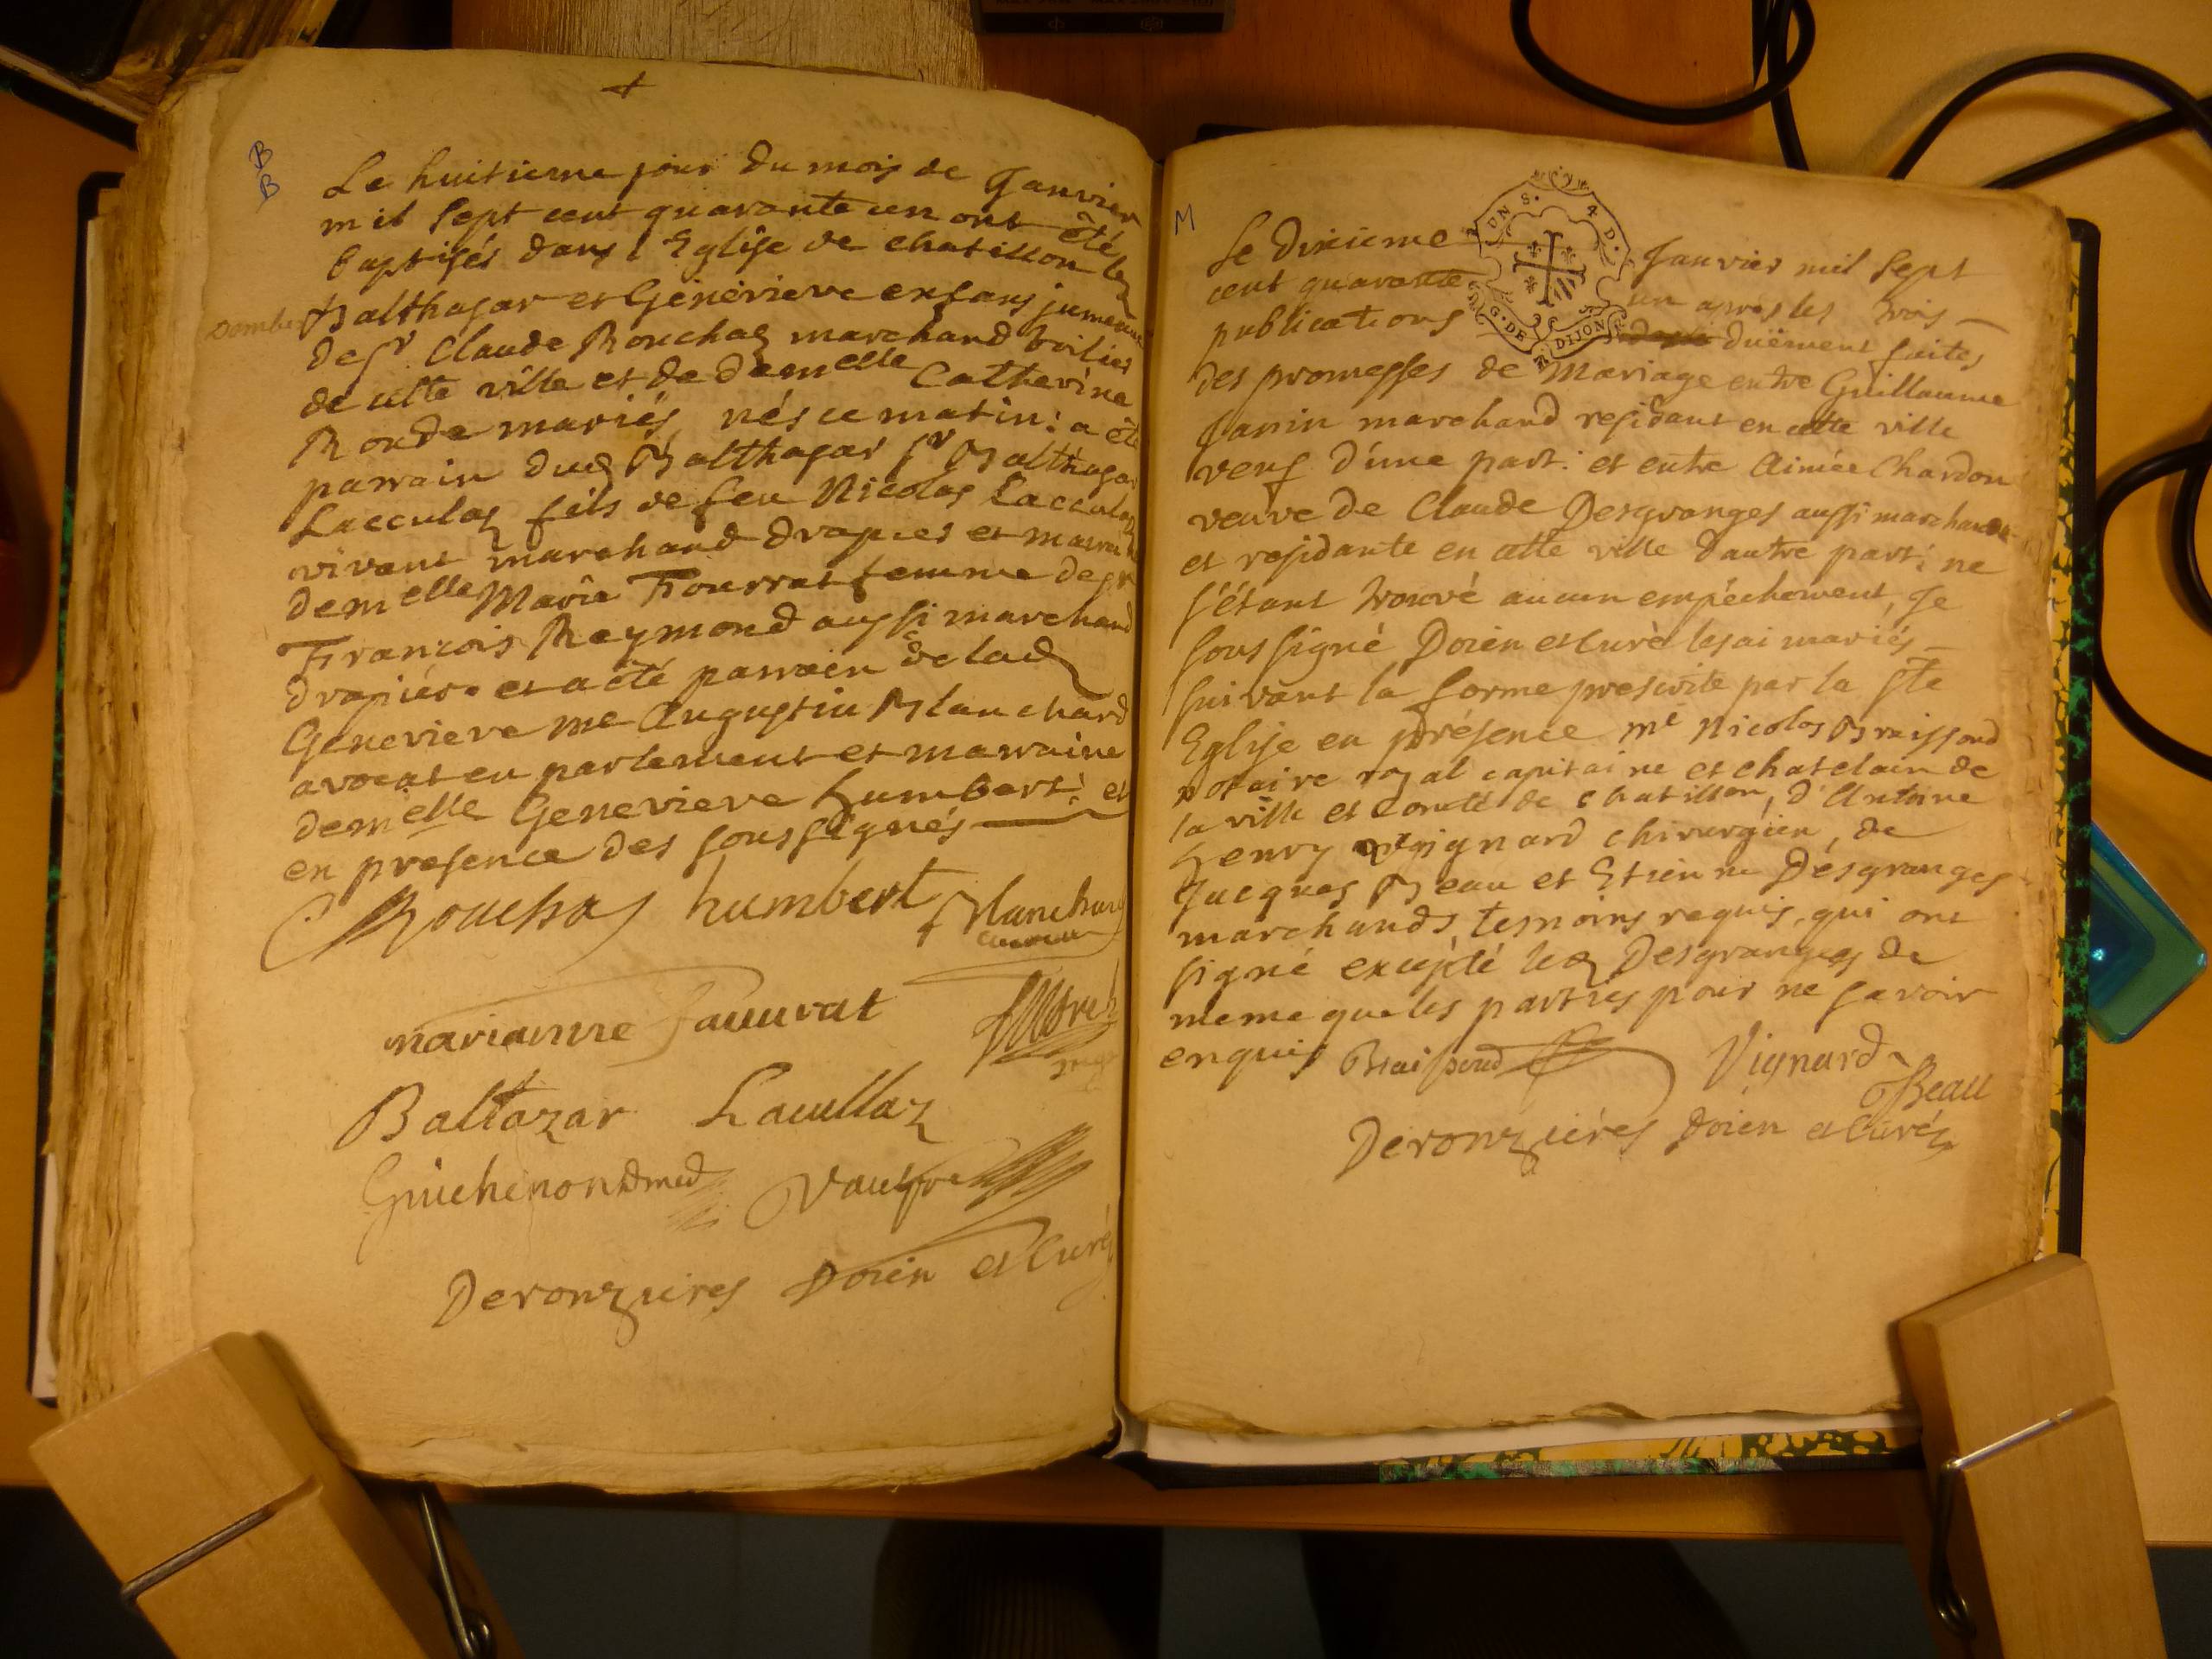 B
B
Le huitieme jour du mois de Janvier
mil sept cent quarante un ont été
baptisés dans l'Eglise de chatillon les
Balthasar et Généviève enfans jumeaux
de sr Claude Rouchas marchand toilier
de cette ville et de demelle Catherine
Ronde mariés, nés ce matin: a été
parrain dud Balthasar sr Balthasar
Lacculas fils de feu Nicolas Lacculas
vivant marchand drapier et marraine
demelle Marie Fourrat femme de sr
François Reymond aussi marchand
drapier et a été parrain de lad
Genevieve me Augustin Blanchard
avocat en parlement et marraine
demelle Genevieve humbert: et
en presence des soussignés
Rouchas humbert Blanchard
marianne fauurat
Baltazar Lacullaz
Guichenon Dmed
Deronzieres Doien et Curé
M
Le dixieme Janvier mil sept
cent quarante un apres les trois
publications duëment faites
des promesses de Mariage entre Guillaume
Janin marchand residant en cette ville
veuf d'une part: et entre Aimée Chardon
veuve de Claude Desgranges aussi marchande
et residante en cette ville d'autre part: ne
s'étant trouvé aucun empéchement, Je
sous signé Doien et Curé les ai mariés
suivant la forme prescrite par la ste
Eglise en présence me Nicolas Braissoud
notaire royal capitaine et chatelain de
la ville et Comté de chatillon, d'Antoine
henry Vignard chirurgien, de
Jacques Beau et Etienne Désgranges
marchands, temoins requis, qui ont
signé excepté led Desgranges de
meme que les parties pour ne savoir
enquis Braissoud Vignard
Beau
Deronzieres Doien et Curé
DUN S. 4 D.
G. DE DIJON